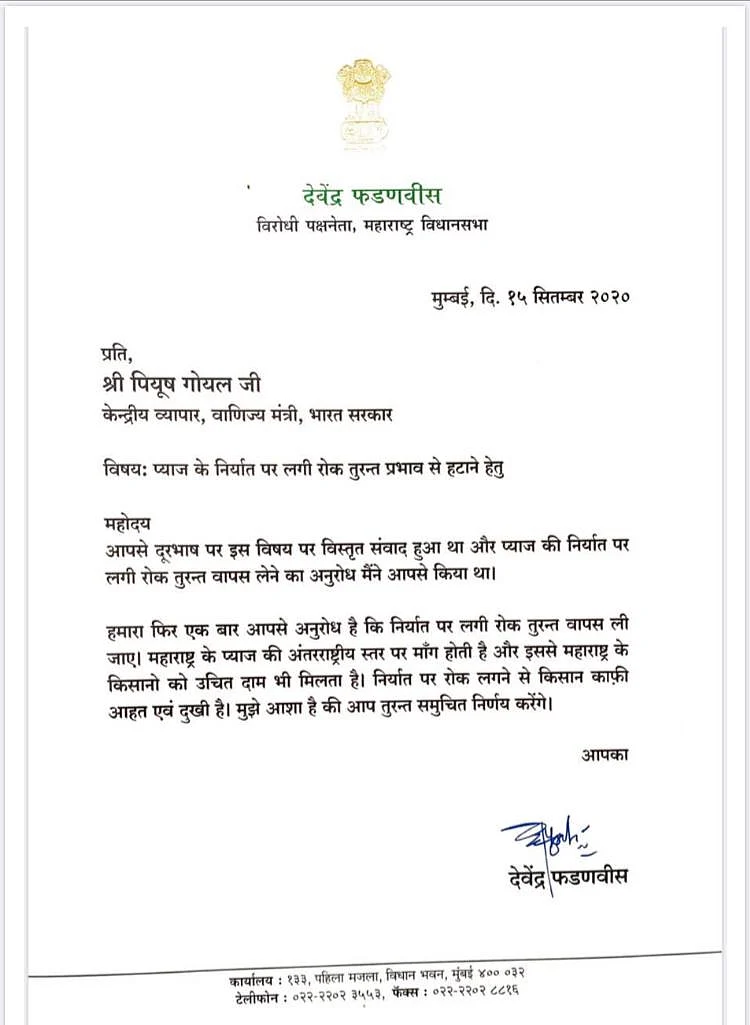 देवेंद्र फडणवीस
विरोधी पक्षनेता, महाराष्ट्र विधानसभा
मुम्बई, दि. १५ सितम्बर २०२०
प्रति,
श्री पियूष गोयल जी
केन्द्रीय व्यापार, वाणिज्य मंत्री, भारत सरकार
विषय: प्याज के निर्यात पर लगी रोक तुरन्त प्रभाव से हटाने हेतु
महोदय
आपसे दूरभाष पर इस विषय पर विस्तृत संवाद हुआ था और प्याज की निर्यात पर
लगी रोक तुरन्त वापस लेने का अनुरोध मैंने आपसे किया था।
हमारा फिर एक बार आपसे अनुरोध है कि निर्यात पर लगी रोक तुरन्त वापस ली
जाए। महाराष्ट्र के प्याज की अंतरराष्ट्रीय स्तर पर माँग होती है और इससे महाराष्ट्र के
किसानो को उचित दाम भी मिलता है। निर्यात पर रोक लगने से किसान काफ़ी
आहत एवं दुखी है। मुझे आशा है की आप तुरन्त समुचित निर्णय करेंगे।
आपका
देवेंद्र फडणवीस
कार्यालय : १३३, पहिला मजला, विधान भवन, मुंबई ४०० ०३२
टेलीफोन : ०२२-२२०२ ३५५३, फॅक्स : ०२२-२२०२ ८८१६